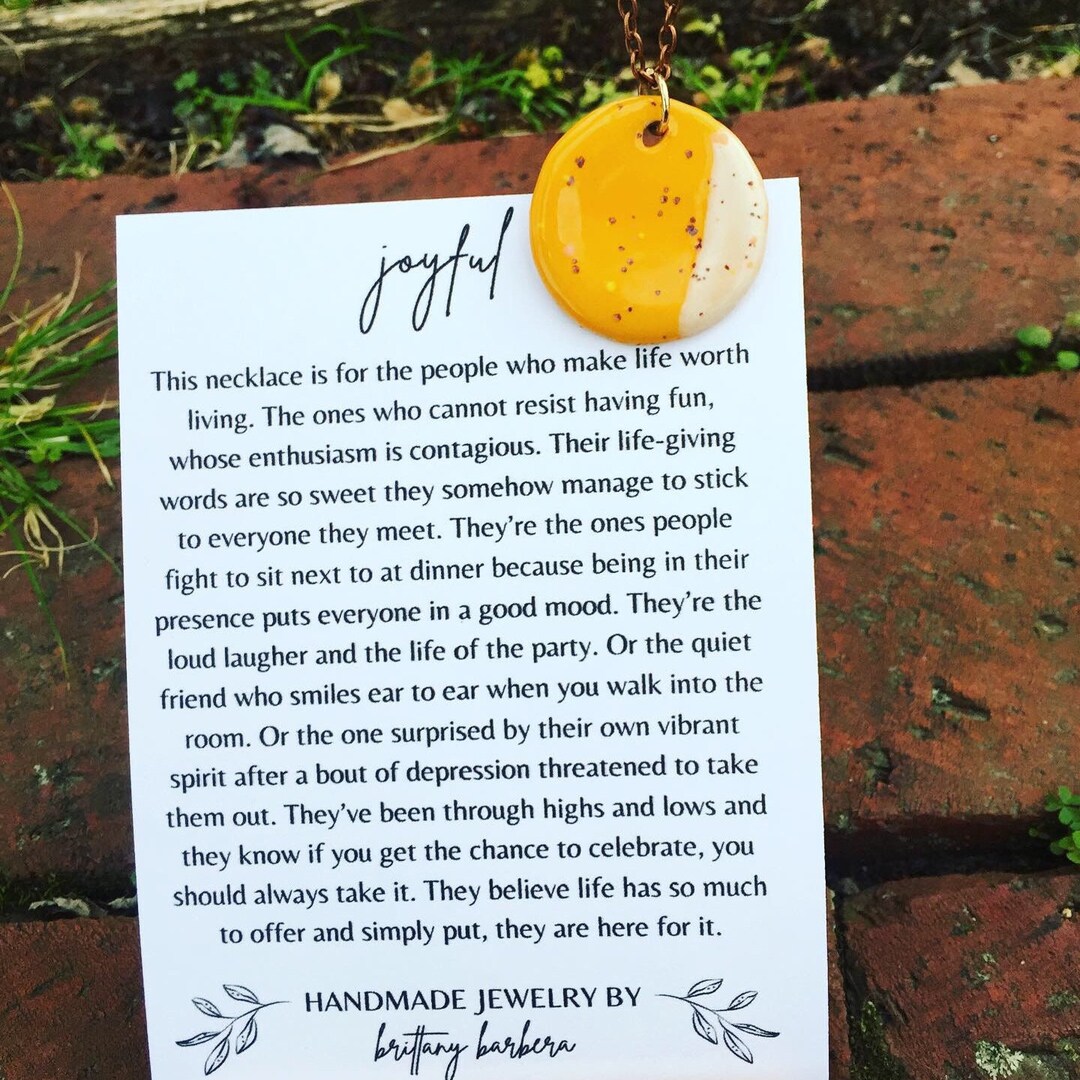 joyful
This necklace is for the people who make life worth
living. The ones who cannot resist having fun,
whose enthusiasm is contagious. Their life-giving
words are so sweet they somehow manage to stick
to everyone they meet. They’re the ones people
fight to sit next to at dinner because being in their
presence puts everyone in a good mood. They’re the
loud laugher and the life of the party. Or the quiet
friend who smiles ear to ear when you walk into the
room. Or the one surprised by their own vibrant
spirit after a bout of depression threatened to take
them out. They’ve been through highs and lows and
they know if you get the chance to celebrate, you
should always take it. They believe life has so much
to offer and simply put, they are here for it.
HANDMADE JEWELRY BY
brittany barbera